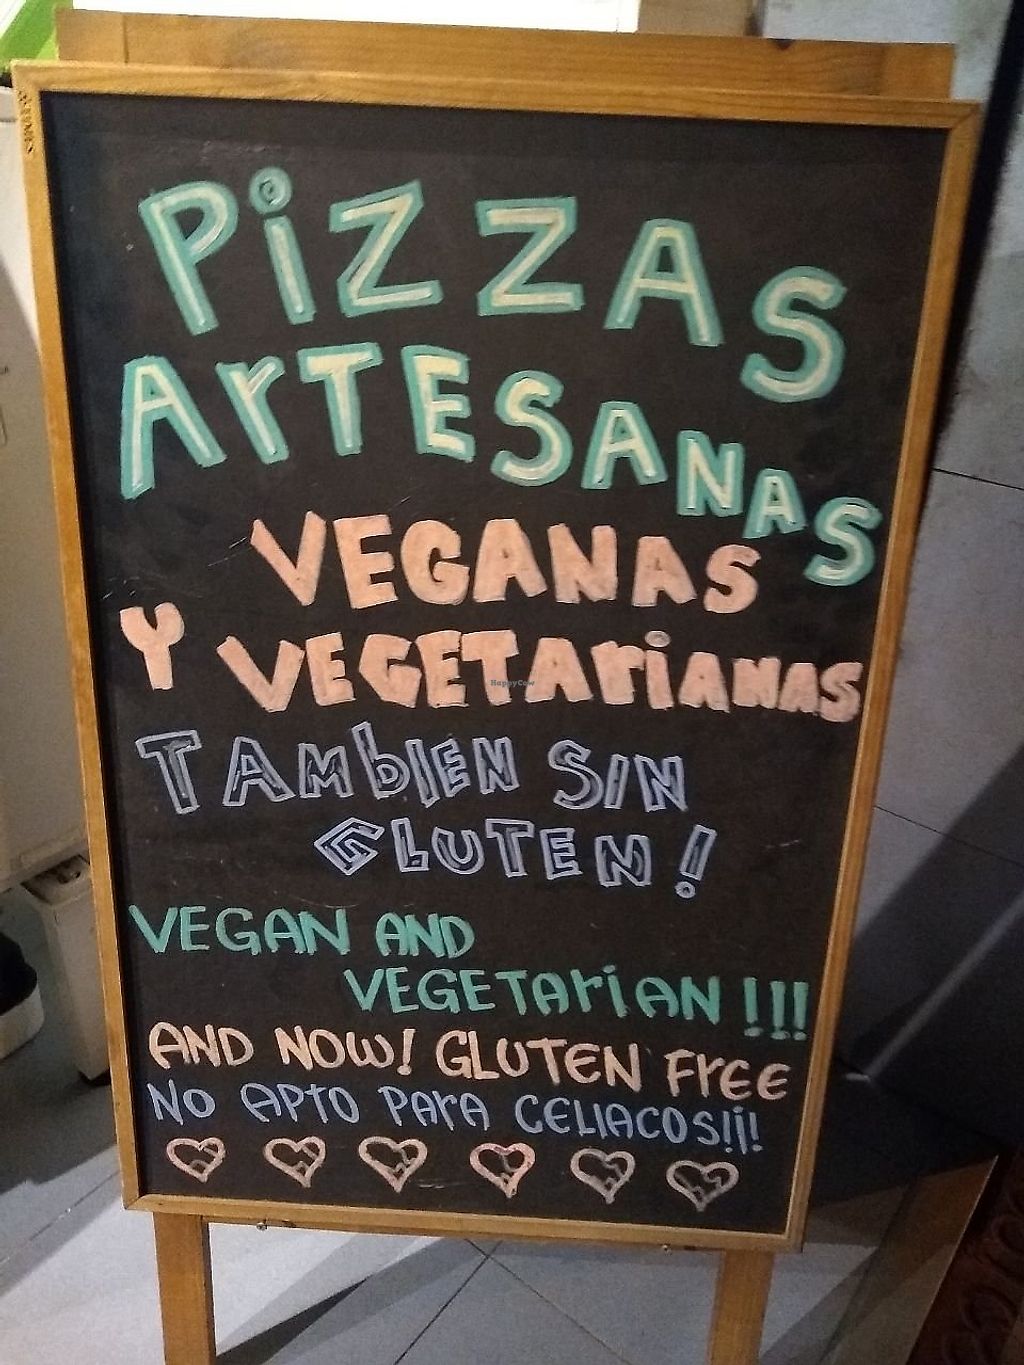 PiZZAS
ArTESANAS
VEGANAS
Y VEGETAriANAS
TAMbIEN SIN
GLUTEN!
VEGAN AND
VEGETAriAN!!!
AND NOW! GLUTEN FrEE
NO APTO PArA CELIACOS!¡!
HappyCow